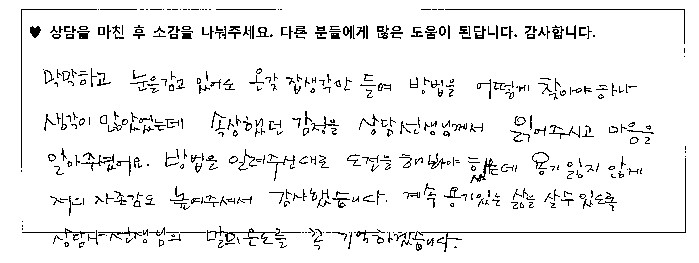 ♥ 상담을 마친 후 소감을 나눠주세요. 다른 분들에게 많은 도움이 된답니다. 감사합니다.
막막하고 눈을감고 있어도 온갖 잡생각만 들며 방법을 어떻게 찾아야하나
생각이 많았었는데 속상했던 감정을 상담선생님께서 읽어주시고 마음을
알아주셨어요. 방법을 알려주신대로 도전을 해봐야 하는데 용기 잃지 않게
저의 자존감도 높여주셔서 감사했습니다. 계속 용기있는 삶을 살 수 있도록
상담사선생님의 말의온도를 꼭 기억하겠습니다.